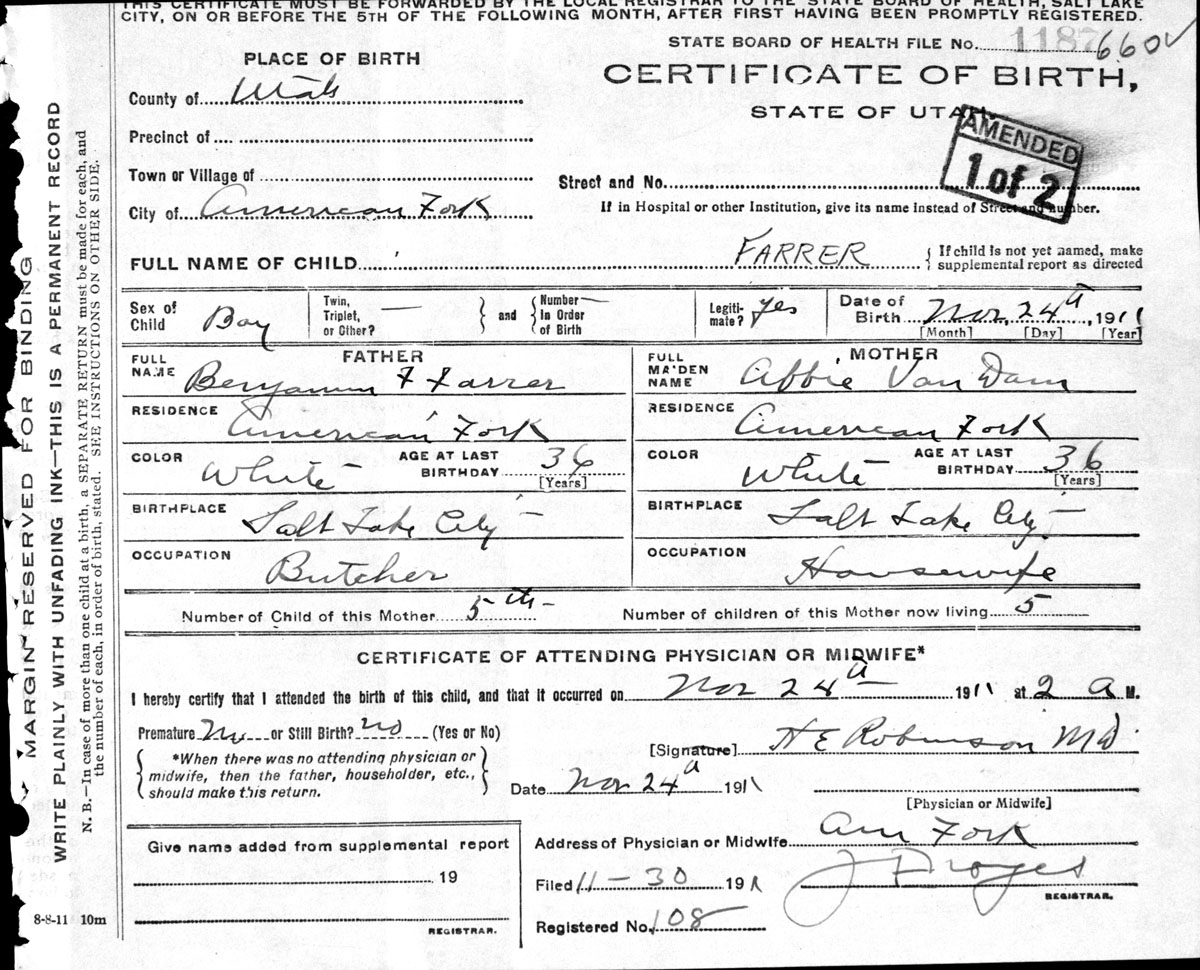 THIS CERTIFICATE MUST BE FORWARDED BY THE LOCAL REGISTRAR TO THE STATE BOARD OF HEALTH, SALT LAKE
CITY, ON OR BEFORE THE 5TH OF THE FOLLOWING MONTH, AFTER FIRST HAVING BEEN PROMPTLY REGISTERED.
STATE BOARD OF HEALTH FILE No. 1187 660V
PLACE OF BIRTH
CERTIFICATE OF BIRTH,
STATE OF UTAH.
County of Utah
AMENDED
1 of 2
Precinct of
Town or Village of
Street and No.
City of American Fork
If in Hospital or other Institution, give its name instead of Street and number.
FULL NAME OF CHILD FARRER
If child is not yet named, make
supplemental report as directed
Sex of Child Boy
Twin, Triplet, or Other? —
and Number In Order of Birth —
Legiti-mate? yes
Date of Birth Nov. 24th, 1911
[Month] [Day] [Year]
FATHER
FULL NAME Benjamin F Farrer
RESIDENCE American Fork
COLOR White AGE AT LAST BIRTHDAY 36 [Years]
BIRTHPLACE Salt Lake City —
OCCUPATION Butcher
MOTHER
FULL MAIDEN NAME Abbie Van Dam
RESIDENCE American Fork
COLOR White AGE AT LAST BIRTHDAY 36 [Years]
BIRTHPLACE Salt Lake City —
OCCUPATION Housewife
Number of Child of this Mother 5th — Number of children of this Mother now living 5
CERTIFICATE OF ATTENDING PHYSICIAN OR MIDWIFE*
I hereby certify that I attended the birth of this child, and that it occurred on Nov 24th 1911 at 2 a M.
Premature No or Still Birth? no (Yes or No)
*When there was no attending physician or
midwife, then the father, householder, etc.,
should make this return.
[Signature] H E Robinson MD
Date Nov 24th 1911
[Physician or Midwife]
Address of Physician or Midwife Am Fork
Filed 11-30 1911
REGISTRAR.
Registered No. 108
Give name added from supplemental report
19
REGISTRAR.
8-8-11 10m
MARGIN RESERVED FOR BINDING
WRITE PLAINLY WITH UNFADING INK—THIS IS A PERMANENT RECORD
N. B.—In case of more than one child at a birth, a SEPARATE RETURN must be made for each, and
the number of each, in order of birth, stated. SEE INSTRUCTIONS ON OTHER SIDE.